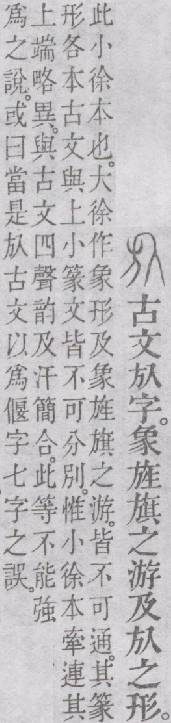 古文㫃字。象旌旗之游及㫃之形。
此小徐本也。大徐作象形及象旌旗之游。皆不可通。其篆
形各本古文與上小篆文皆不可分別。惟小徐本牽連其
上端略異。與古文四聲韵及汗簡合。此等不能強
爲之說。或曰當是㫃古文以爲偃字七字之誤。